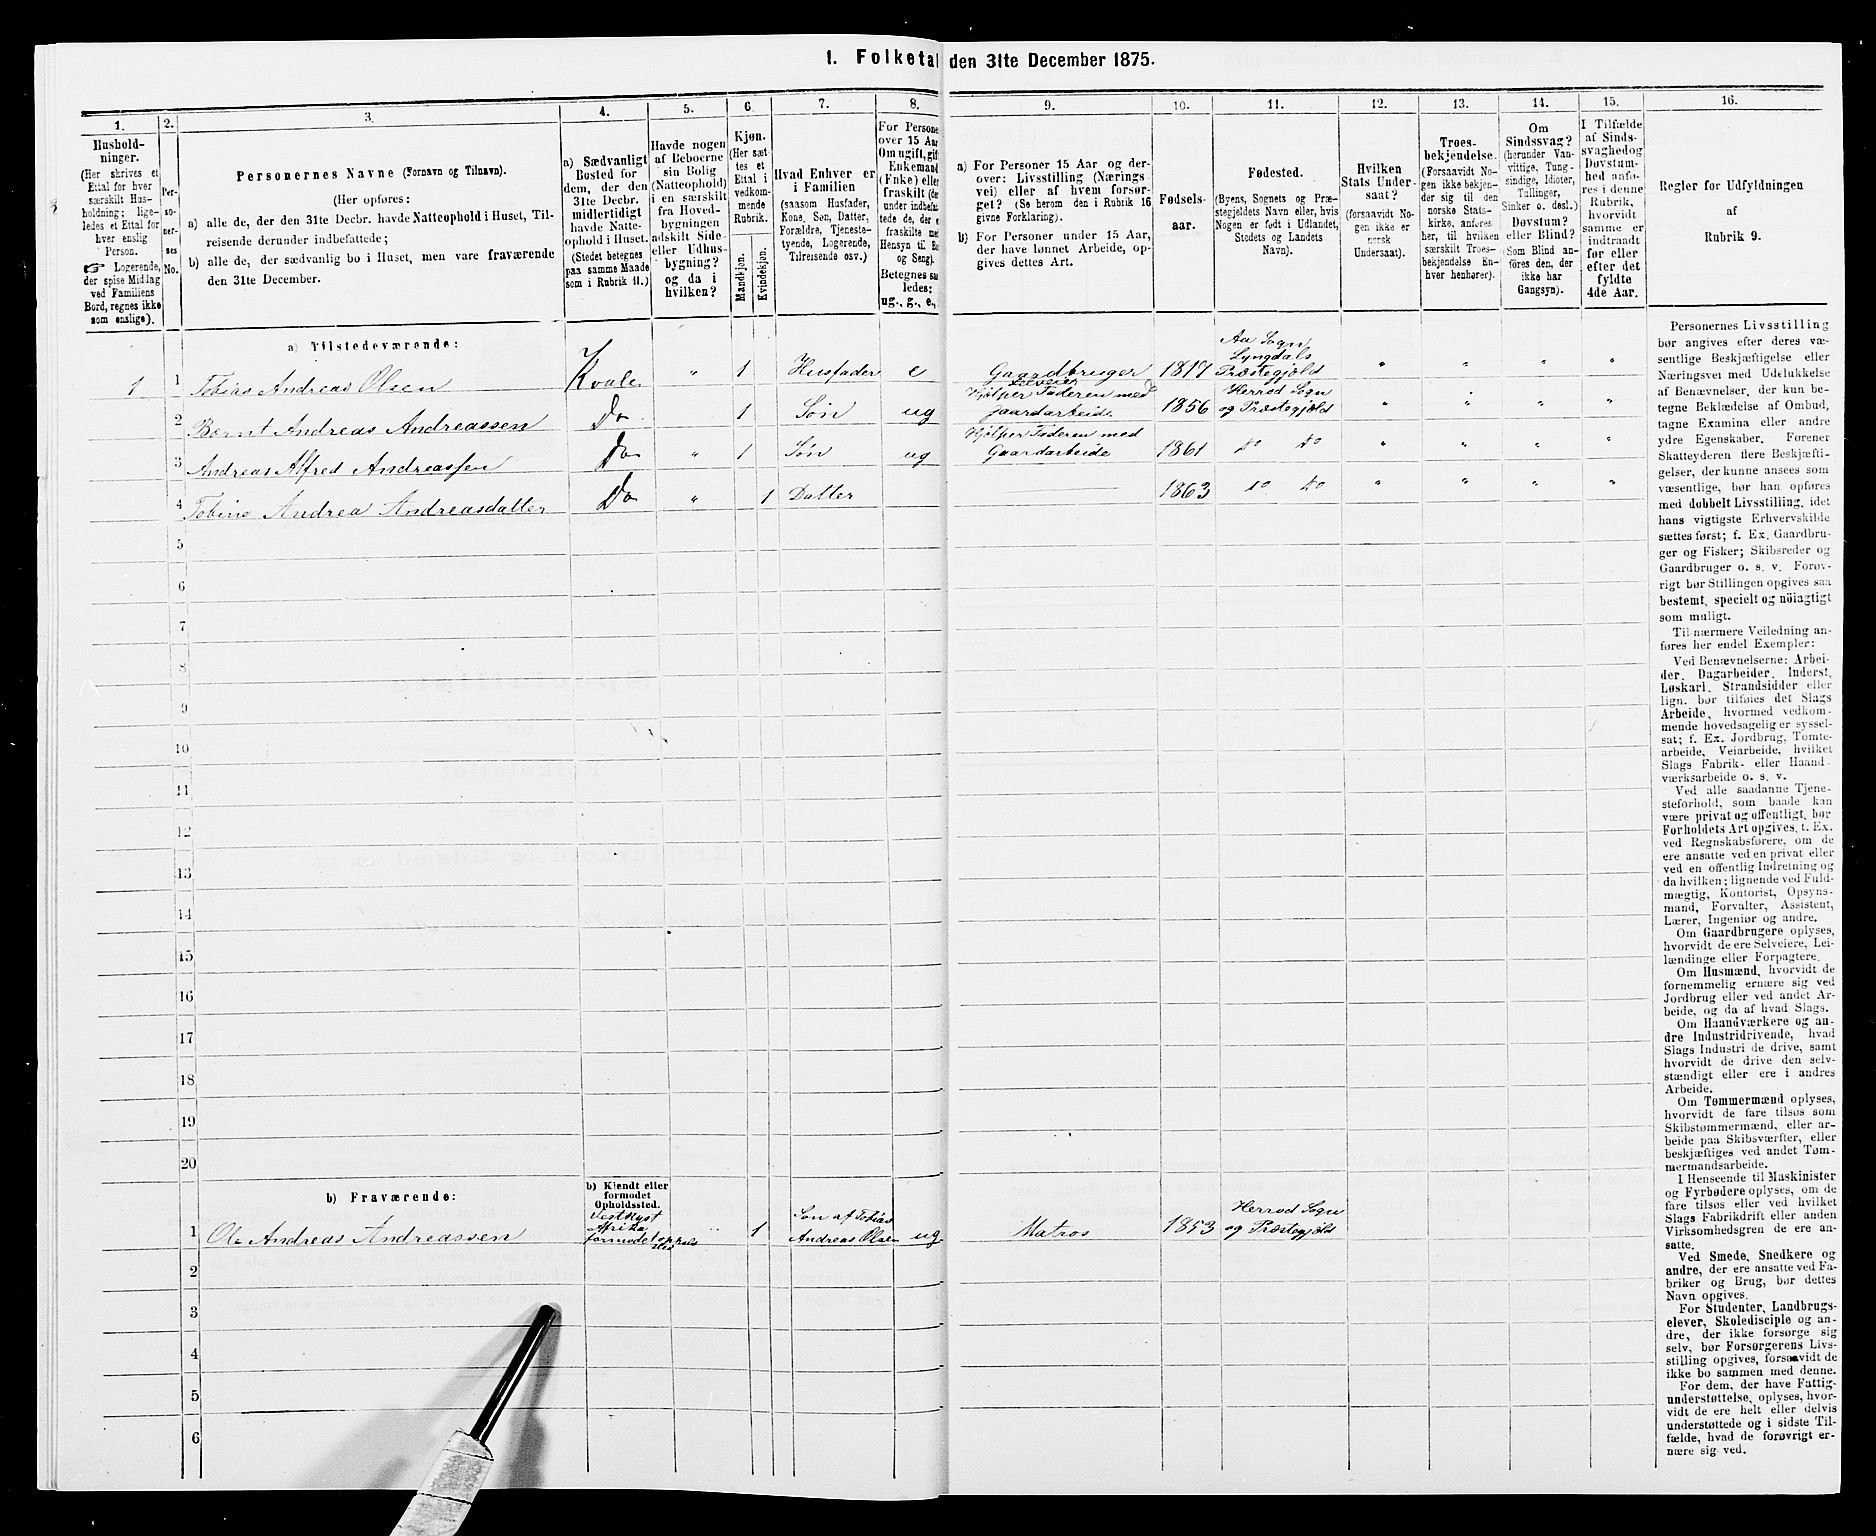 1. Folketal den 31te December 1875.
1.
Hushold-
ninger.
(Her skrives et
Ettal for hver
særskilt Hus-
holdning; lige-
ledes et Ettal for
hver enslig
Person.
☞ Logerende,
der spise Middag
ved Familiens
Bord, regnes ikke
som enslige).
2.
Per-
so-
ner-
nes
No.
3.
Personernes Navne (Fornavn og Tilnavn).
(Her opføres:
a) alle de, der den 31te Decbr. havde Natteophold i Huset, Til-
reisende derunder indbefattede;
b) alle de, der sædvanlig bo i Huset, men vare fraværende
den 31te December.
4.
a) Sædvanligt
Bosted for
dem, der den
31te Decbr.
midlertidigt
havde Natte-
ophold i Huset.
(Stedet betegnes
paa samme Maade
som i Rubrik 11.)
5.
Havde nogen
af Beboerne
sin Bolig
(Natteophold)
i en særskilt
fra Hoved-
bygningen
adskilt Side-
eller Udhus-
bygning?
og da i
hvilken?
6.
Kjøn.
(Her sæt-
tes et
Ettal i
vedkom-
mende
Rubrik.
Mandkjøn.
Kvindekjøn.
7.
Hvad Enhver er
i Familien
(saasom Husfader,
Kone, Søn, Datter,
Forældre, Tjeneste-
tyende, Logerende,
Tilreisende osv.)
8.
For Persone
over 15 Aar
Om ugift, gift
Enkemand
(Enke) elle
fraskilt (de
under indbefat
tede de, der e
fraskilte me
Hensyn til Bo
og Seng).
Betegnes saa
ledes:
ug., g., e.,
9.
a) For Personer 15 Aar og der-
over: Livsstilling (Nærings-
vei) eller af hvem forsør-
get? (Se herom den i Rubrik 16
givne Forklaring).
b) For Personer under 15 Aar,
der have lønnet Arbeide, op-
gives dettes Art.
10.
Fødsels-
aar.
11.
Fødested.
(Byens, Sognets og Præ-
stegjeldets Navn eller, hvis
Nogen er født i Udlandet,
Stedets og Landets
Navn).
12.
Hvilken
Stats Under-
saat?
(forsaavidt No-
gen ikke er
norsk
Undersaat).
13.
Troes-
bekjendelse.
(Forsaavidt No-
gen ikke bekjen-
der sig til den
norske Stats-
kirke, anføres
her, til hvilken
særskilt Troes-
bekjendelse En-
hver henhører).
14.
Om
Sindssvag?
(herunder Van-
vittige, Tung-
sindige, Idioter,
Tullinger,
Sinker o. desl.)
Døvstum?
eller Blind?
(Som Blind an-
føres den, der
ikke har
Gangsyn).
15.
I Tilfælde
af Sinds-
svaghed og
Døvstum-
hed anfø-
res i denne
Rubrik,
hvorvidt
samme er
indtraadt
før eller
efter det
fyldte
4de Aar.
16.
Regler for Udfyldningen
af
Rubrik 9.
a) Tilstedeværende:
1 1 Tobias Andreas Olsen Kvale " 1 Husfader e Gaardbruger Selveier 1817 Aa Sogn Lyngdals Præstegjeld " " " "
2 Bernt Andreas Andreassen Do 1 Søn ug Hjelper Faderen med gaardarbeide 1856 Herred Sogn og Præstegjeld " " " "
3 Andreas Alfred Andreassen Do " 1 Søn ug Hjelper Faderen med Gaardarbeide 1861 do do " " " "
4 Tobine Andrea Andreasdatter Do " 1 Datter 1863 do do " " " "
5
6
7
8
9
10
11
12
13
14
15
16
17
18
19
20
b) Fraværende:
b) Kjendt eller
formodet
Opholdssted.
1 Ole Andreas Andreassen Vestkyst Afrika formodet opholdssted " 1 Søn af Tobias Andreas Olsen ug Matros 1853 Herred Sogn og Præstegjeld
2
3
4
5
6
Personernes Livsstilling
bør angives efter deres væ-
sentlige Beskjæftigelse eller
Næringsvei med Udelukkelse
af Benævnelser, der kun be-
tegne Beklædelse af Ombud,
tagne Examina eller andre
ydre Egenskaber. Forener
Skatteyderen flere Beskjæfti-
gelser, der kunne ansees som
væsentlige, bør han opføres
med dobbelt Livsstilling, idet
hans vigtigste Erhvervskilde
sættes først; f. Ex. Gaardbru-
ger og Fisker; Skibsreder og
Gaardbruger o. s. v. Forøv-
rigt bør Stillingen opgives saa
bestemt, specielt og nöiagtigt
som muligt.
Til nærmere Veiledning an-
føres her endel Exempler:
Ved Benævnelserne: Arbei-
der, Dagarbeider, Inderst,
Løskarl, Strandsidder eller
lign. bør tilføies det Slags
Arbeide, hvormed vedkom-
mende hovedsagelig er syssel-
sat; f. Ex. Jordbrug, Tomte-
arbeide, Veiarbeide, hvilket
Slags Fabrik- eller Haand-
værksarbeide o. s. v.
Ved alle saadanne Tjene-
steforhold, som baade kan
være privat og offentligt, bør
Forholdets Art opgives, t. Ex.
ved Regnskabsførere, om de
ere ansatte ved en privat eller
ved en offentlig Indretning og
da hvilken; lignende ved Fuld-
mægtig, Kontorist, Opsyns-
mand, Forvalter, Assistent,
Lærer, Ingeniør og andre.
Om Gaardbrugere oplyses,
hvorvidt de ere Selveiere, Lei-
lændinge eller Forpagtere.
Om Husmænd, hvorvidt de
fornemmelig ernære sig ved
Jordbrug eller ved andet Ar-
beide, og da af hvad Slags.
Om Haandværkere og an-
dre Industridrivende, hvad
Slags Industri de drive, samt
hvorvidt de drive den selv-
stændigt eller ere i andres
Arbeide.
Om Tømmermænd oplyses,
hvorvidt de fare tilsøs som
Skibstømmermænd, eller ar-
beide paa Skibsværfter, eller
beskjæftiges ved andet Tøm-
mermandsarbeide.
I Henseende til Maskinister
og Fyrbødere oplyses, om de
fare tilsøs eller ved hvilket
Slags Fabrikdrift eller anden
Virksomhedsgren de ere an-
satte.
Ved Smede, Snedkere og
andre, der ere ansatte ved Fa-
briker og Brug, bør dettes
Navn opgives.
For Studenter, Landbrugs-
elever, Skoledisciple og an-
dre, der ikke forsørge sig
selv, bør Forsørgerens Livs-
stilling opgives, forsaavidt de
ikke bo sammen med denne.
For dem, der have Fattig-
understøttelse, oplyses, hvor-
vidt de ere helt eller delvis
understøttede og i sidste Til-
fælde, hvad de forøvrigt er-
nære sig ved.